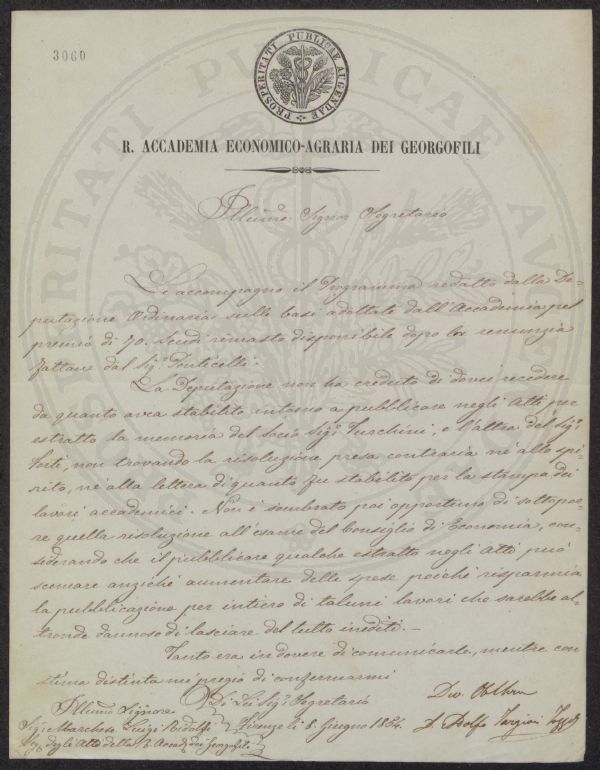 3060
PROSPERITATI PUBLICAE AUGENDAE
R. ACCADEMIA ECONOMICO-AGRARIA DEI GEORGOFILI
Illmo. Signor Segretario
Le accompagno il Programma redatto dalla De-
putazione Ordinaria sulle basi adottate dall'Accademia pel
premio di 70. Scudi rimasto disponibile dopo la renunzia
fattane dal Sigr. Ponticelli.
La Deputazione non ha creduto di dover recedere
da quanto avea stabilito intorno a pubblicare negli Atti per
estratto la memoria del socio Sigr. Turchini, e l'altra del Sigr.
Forti, non trovando la risoluzione presa contraria nè allo spi-
rito, nè alla lettera di quanto fu stabilito per la stampa dei
lavori accademici. Non è sembrato poi opportuno di sottopor-
re quella risoluzione all'esame del Consiglio di Economia, con-
siderando che il pubblicare qualche estratto negli Atti può
scemare anziché aumentare delle spese poiché risparmia
la pubblicazione per intiero di taluni lavori che sarebbe al-
tronde dannoso di lasciare del tutto inediti. —
Tanto era in dovere di comunicarle, mentre con
stima distinta mi pregio di confermarmi
Di Lei Sigr. Segretario
Illmo Signore
Sigr. Marchese Luigi Ridolfi
Segr. degli Atti della R. Accad. dei Georgofili
Firenze li 8. Giugno 1854.
Dev. Obblmo
D. Adolfo Targioni Tozzetti